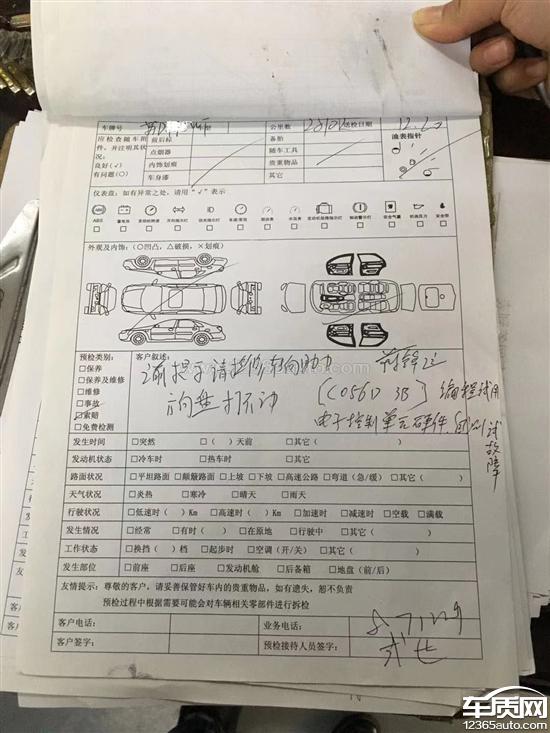 车牌号 公里数 送检日期
应检查随车附件，并注明其状况： 前后标 备胎 油表指针
点烟器 随车工具
良好(√) 内饰划痕 贵重物品
有问题(○) 车身漆 其它
仪表盘：如有异常之处，请用“√”表示
ABS 蓄电池 发动机转速 方向指示灯 远光指示灯 车速/里程 燃油表 水温表 发动机故障指示灯 制动警示灯 安全气囊 机油压力 安全带
外观及内饰：(○凹凸，△破损，×划痕)
预检类别： 客户叙述：
□保养
□保养及维修
□维修
□事故
□索赔
□免费检测
提示请检修方向助力
方向盘打不动
[C056D 3B]
电子控制单元硬件
故障
发生时间 □突然 □（ ）天前 □其它（ ）
发动机状态 □冷车时 □热车时 □其它（ ）
路面状况 □平坦路面 □颠簸路面 □上坡 □下坡 □高速公路 □弯道（急/缓） □其它（ ）
天气状况 □炎热 □寒冷 □晴天 □雨天
行驶状况 □低速时（ ）Km □高速时（ ）Km □加速时 □减速时 □空载 □满载
发生情况 □经常 □有时（ ） □在原地 □行驶中 □其它（ ）
工作状态 □换挡（ ）档 □起步时 □空调（开/关） □其它（ ）
发生部位 □前座 □后座 □发动机舱 □后备箱 □地盘（前/后）
友情提示：尊敬的客户，请妥善保管好车内的贵重物品，如有遗失，恕不负责
预检过程中根据需要可能会对车辆相关零部件进行拆检
客户电话： 业务电话：
客户签字： 预检接待人员签字：
车质网
12365auto.com